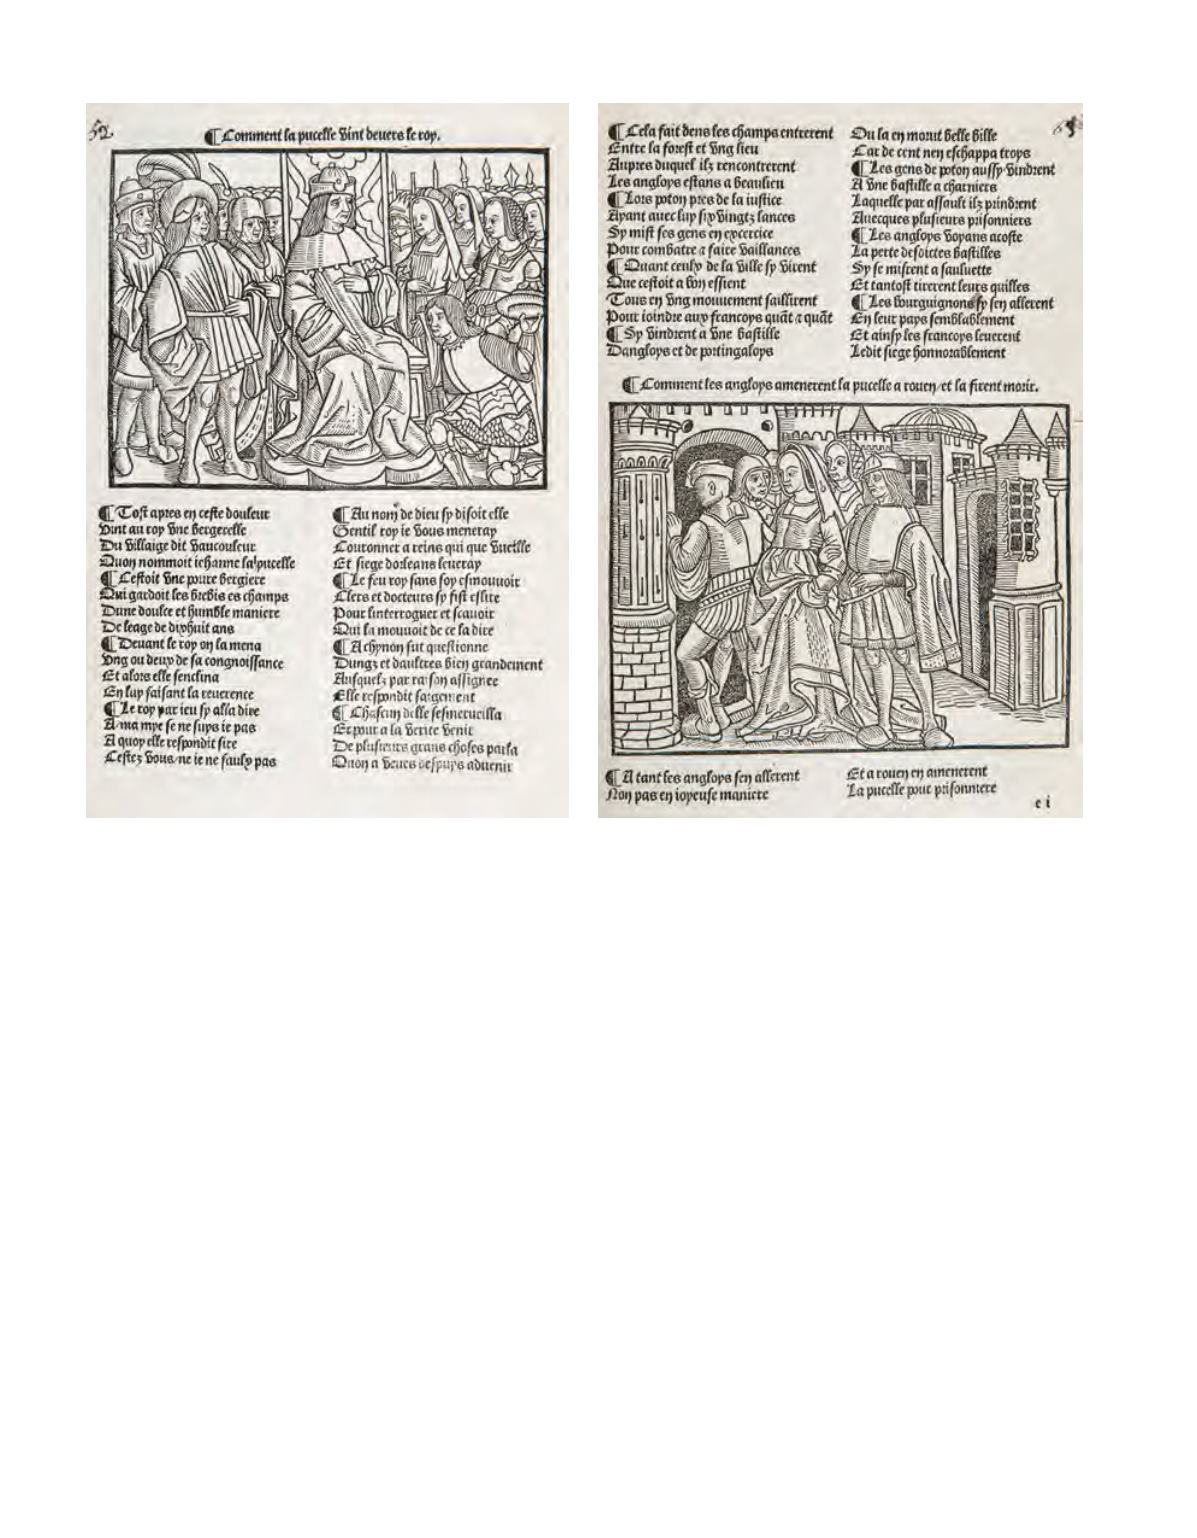 52
¶ Comment la pucelle vint devers le roy.
¶ Tost apres en ceste douleur
Vint au roy vne bergerelle
Du villaige dit vaucouleur
Quon nommoit iehanne la pucelle
¶ Cestoit vne poure bergiere
Qui gardoit les brebis es champs
Dune doulce et humble maniere
De leage de dixhuit ans
¶ Deuant le roy on la mena
Vng ou deux de sa congnoissance
Et alors elle senclina
En luy faisant la reuerence
¶ Le roy par ieu sy alla dire
A ma mye se ne suys ie pas
A quoy elle respondit sire
Cestez vous/ne ie ne faulx pas
¶ Au nom de dieu sy disoit elle
Gentil roy ie vous meneray
Couronner a reins qui que vueille
Et siege dorleans leueray
¶ Le feu roy sans soy esmouuoir
Clers et docteurs sy fist eslire
Pour linterroguer et scauoir
Qui la mouuoit de ce la dire
¶ A chynon fut questionne
Dungz et daultres bien grandement
Ausquelz par raison assignee
Elle respondit saigement
¶ Chascun delle sesmerueilla
Et pour a la verite venir
De plusieurs grans choses parla
Quon a veues despuys aduenir
¶ Cela fait dens les champs entrerent
Entre la forest et vng lieu
Aupres duquel ilz rencontrerent
Les angloys estans a beaulieu
¶ Lors poton pres de la iustice
Ayant auec luy six vingtz lances
Sy mist ses gens en excercice
Pour combatre a faire vaillances
¶ Quant ceulx de la ville sy virent
Que cestoit a bon essient
Tous en vng mouuement saillirent
Pour ioindre aux francoys quãt a quãt
¶ Sy vindrent a vne bastille
Dangloys et de portingaloys
Ou la en morut belle bille
Car de cent nen eschappa troys
¶ Les gens de poton aussy vindrent
A vne bastille a charniers
Laquelle par assault ilz prindrent
Auecques plusieurs prisonniers
¶ Les angloys voyans acoste
La perte desoictes bastilles
Sy se misrent a sauluette
Et tantost tirerent leurs quilles
¶ Les bourguignons sy sen allerent
En leur pays semblablement
Et ainsy les francoys leuerent
Ledit siege honnorablement
¶ Comment les angloys amenerent la pucelle a rouen/et la firent morir.
¶ A tant les angloys sen allerent
Non pas en ioyeuse maniere
Et a rouen en amenerent
La pucelle pour prisonniere
e i